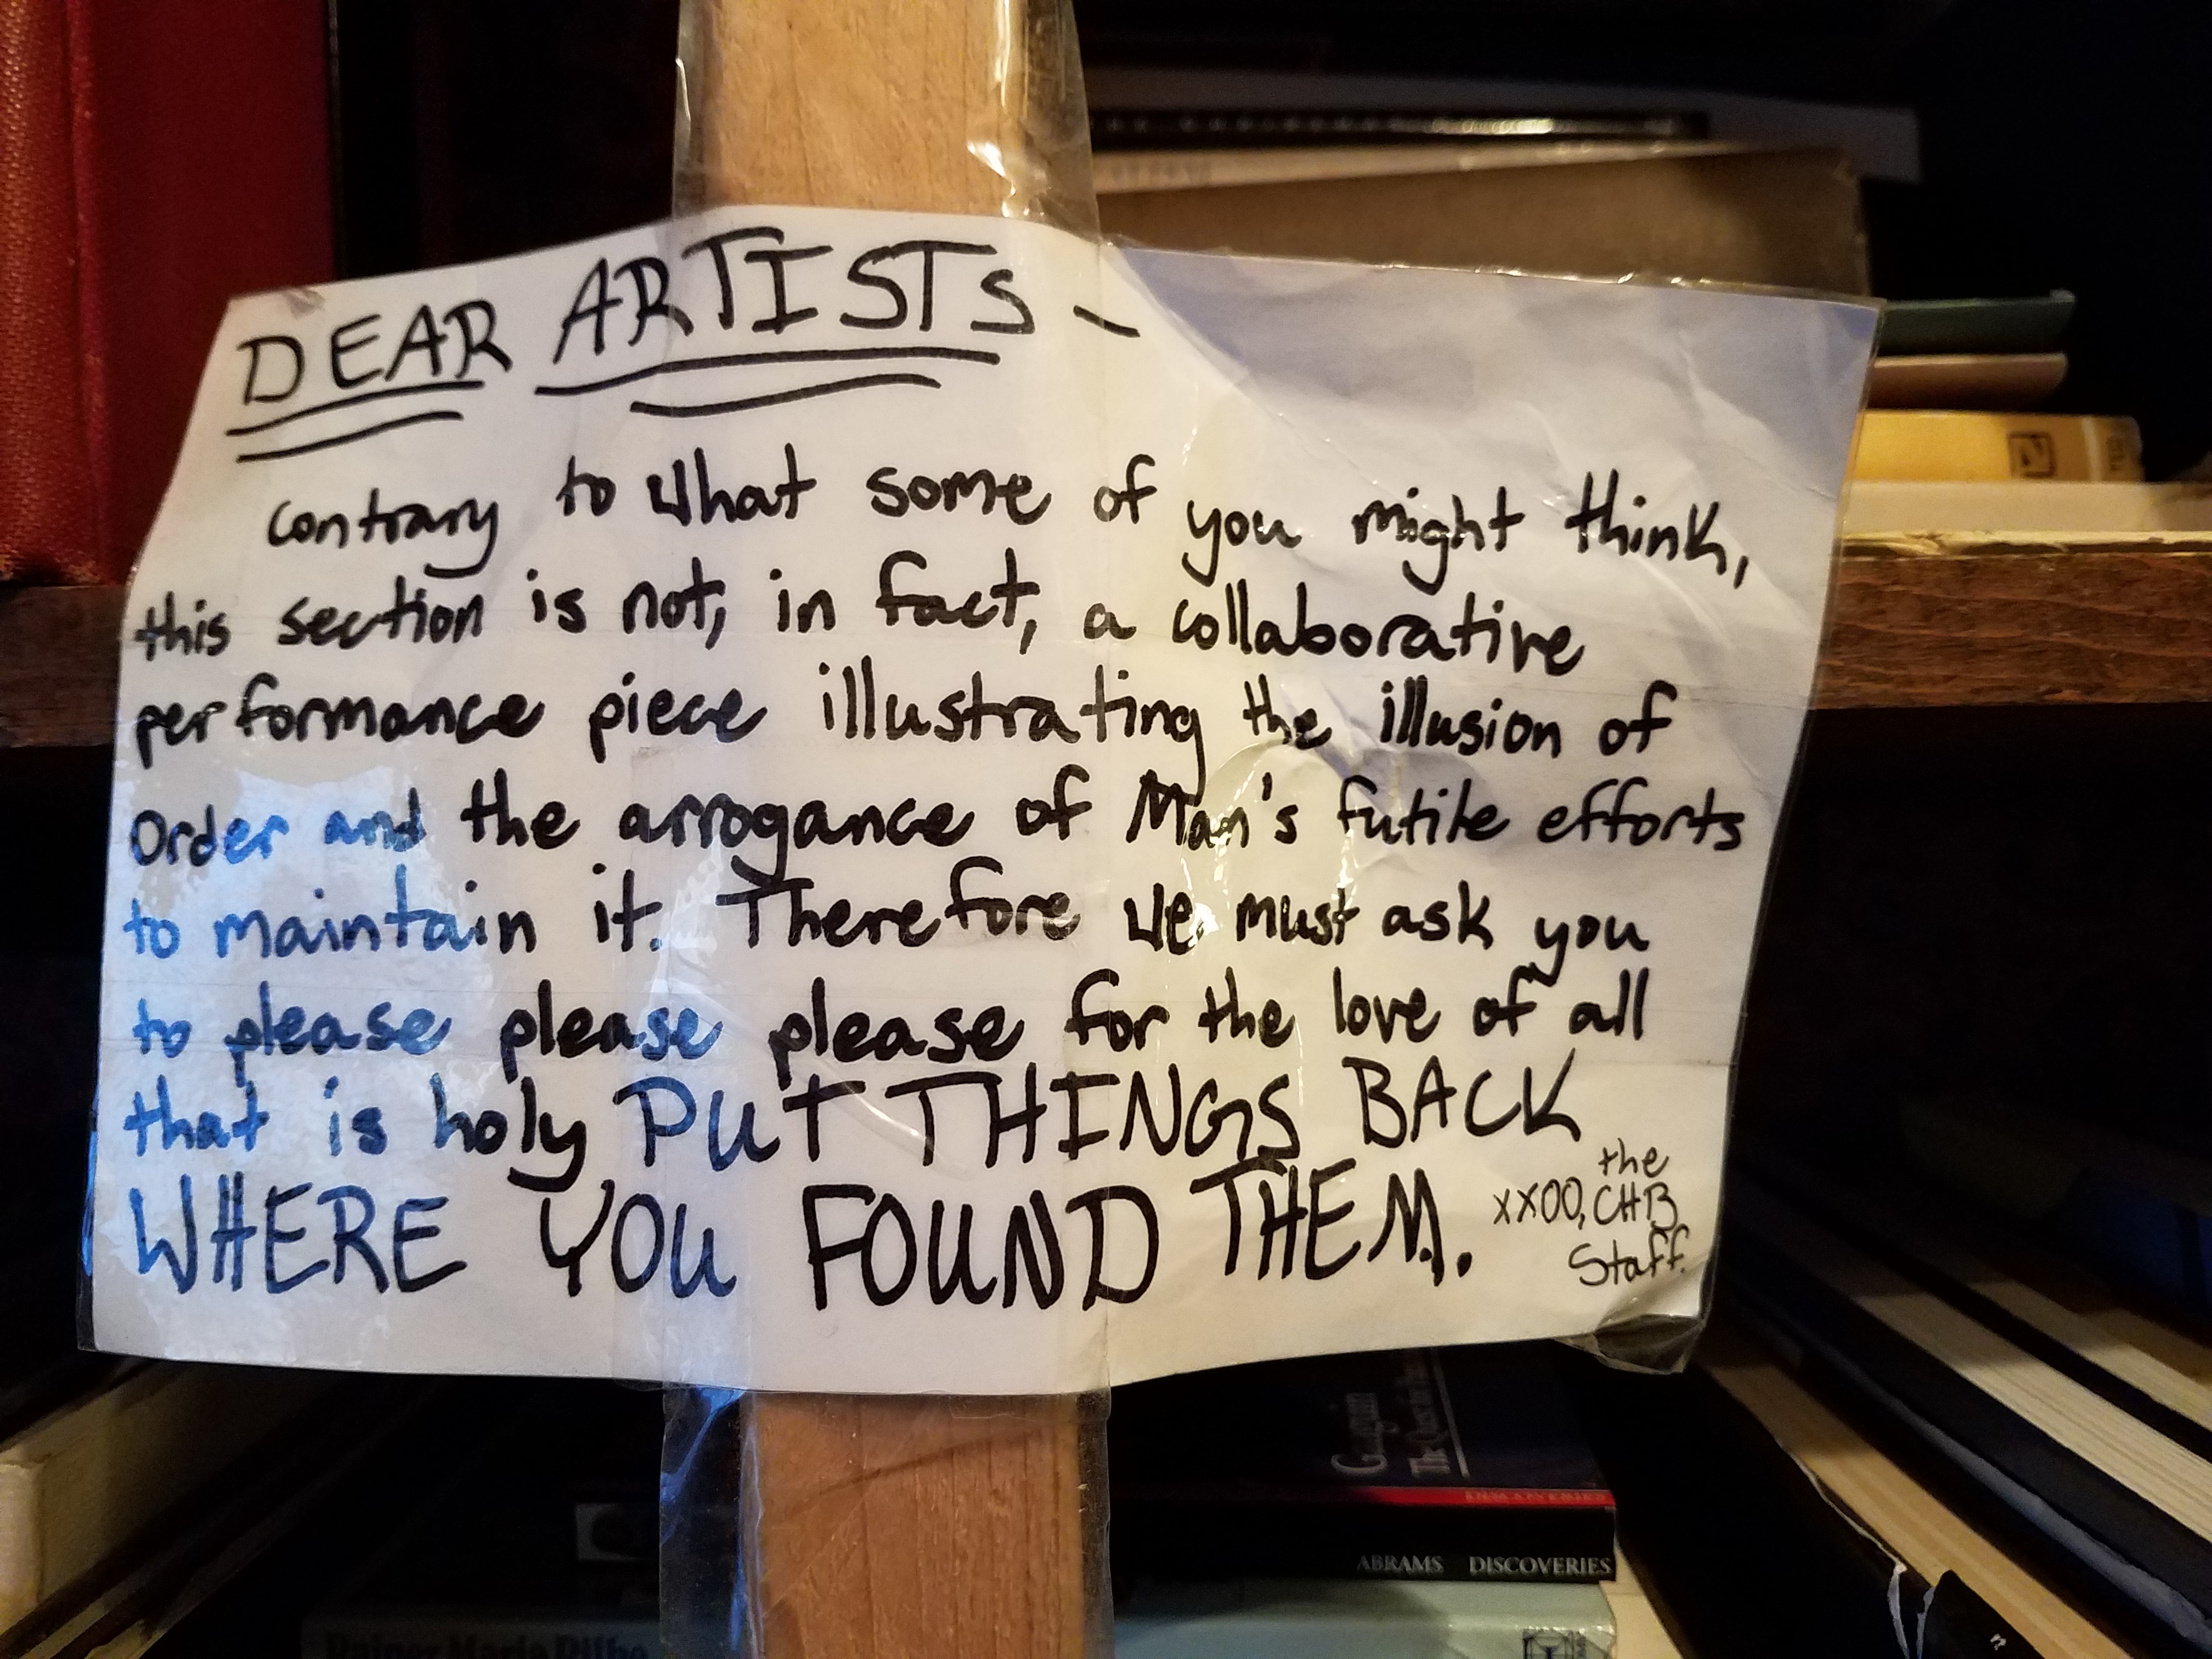 DEAR ARTISTS -
contrary to what some of you might think,
this section is not, in fact, a collaborative
performance piece illustrating the illusion of
Order and the arrogance of Man's futile efforts
to maintain it. Therefore we must ask you
to please please please for the love of all
that is holy PUT THINGS BACK
WHERE YOU FOUND THEM.
xxoo, the CHB
Staff.
Gauguin
DISCOVERIES
ABRAMS DISCOVERIES
Rainer Maria Rilke